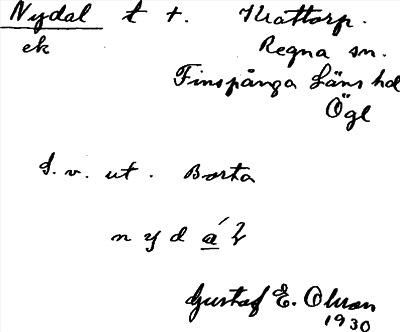 Nydal t t. Krattorp.
ek Regna sn.
Finspånga Läns hd
Ögl
d. v. ut. Borta
n y d á l
Gustaf E. Olsson
1930